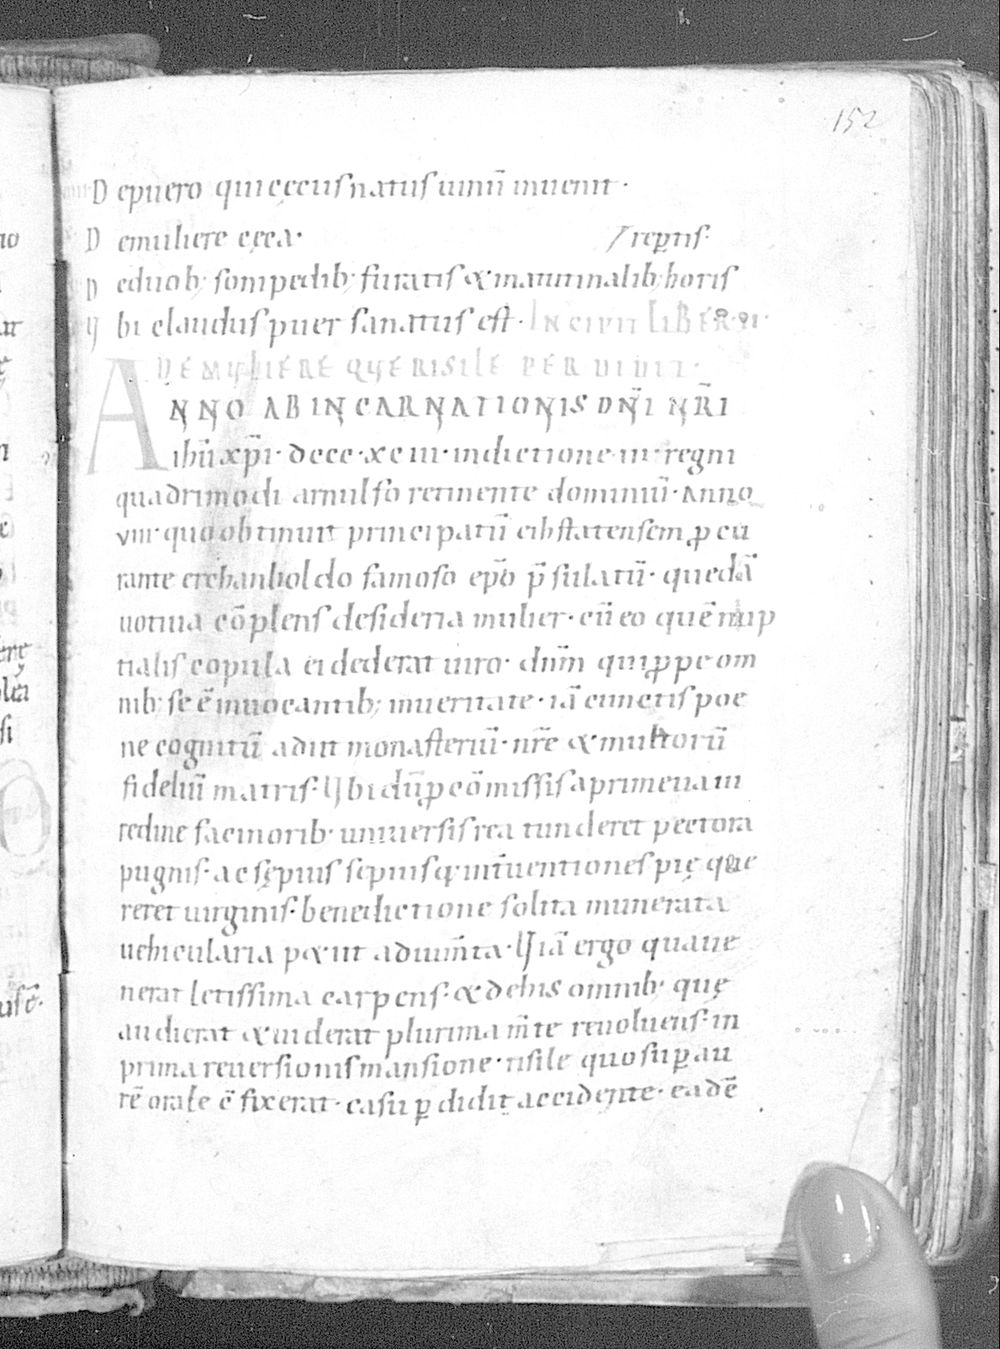 152
D epuero qui cęcus natus uisuꝫ inuenit·
D emuliere cęca·
/ rep̲tis·
D eduob; sonipedib; furatis & matutinalib; horis
Ubi claudus puer sanatus est· INCIPIT LIBER· III·
DE MULIERE QUE RISILE PERDIDIT·
ANNO AB INCARNATIONIS DN̄I NR̄I
ihū xp̄i· dccc· xc iii· indictione· iii· regni
quadrimodi arnulfo retinente dominiū· Anno
viiii· quo obtinuit principatū eihstatensem ꝓcu
rante erchanboldo famoso ep̄o p̄sulatū· quedā
uotiua cō̄plens desideria mulier· cū eo quē nup
tialis copula ei dederat uiro· dn̄m quippe om
nib; se ē̄ inuocantib; inueritate· iā cunctis poe
ne cognitū adiit monasteriū· nr̄e & multorū
fideliū matris· Ubi dū ꝓ cōmissis aprimeua in
redine facinorib; uniuersis rea tunderet pectora
pugnis· ac sępius sepiusq; int̄uentiones pię quę
reret uirginis· benedictione solita munerata
uehicularia pet iit adium̄ta· Uiā ergo quaue
nerat letissima carpens· & dehis omnib; quę
audierat & uiderat plurima m̄te reuoluens· in
prima reuersionis mansione· risile quo sup̲ au
rē orale ē̄ fixerat· casu p̲didit accidente· eadē